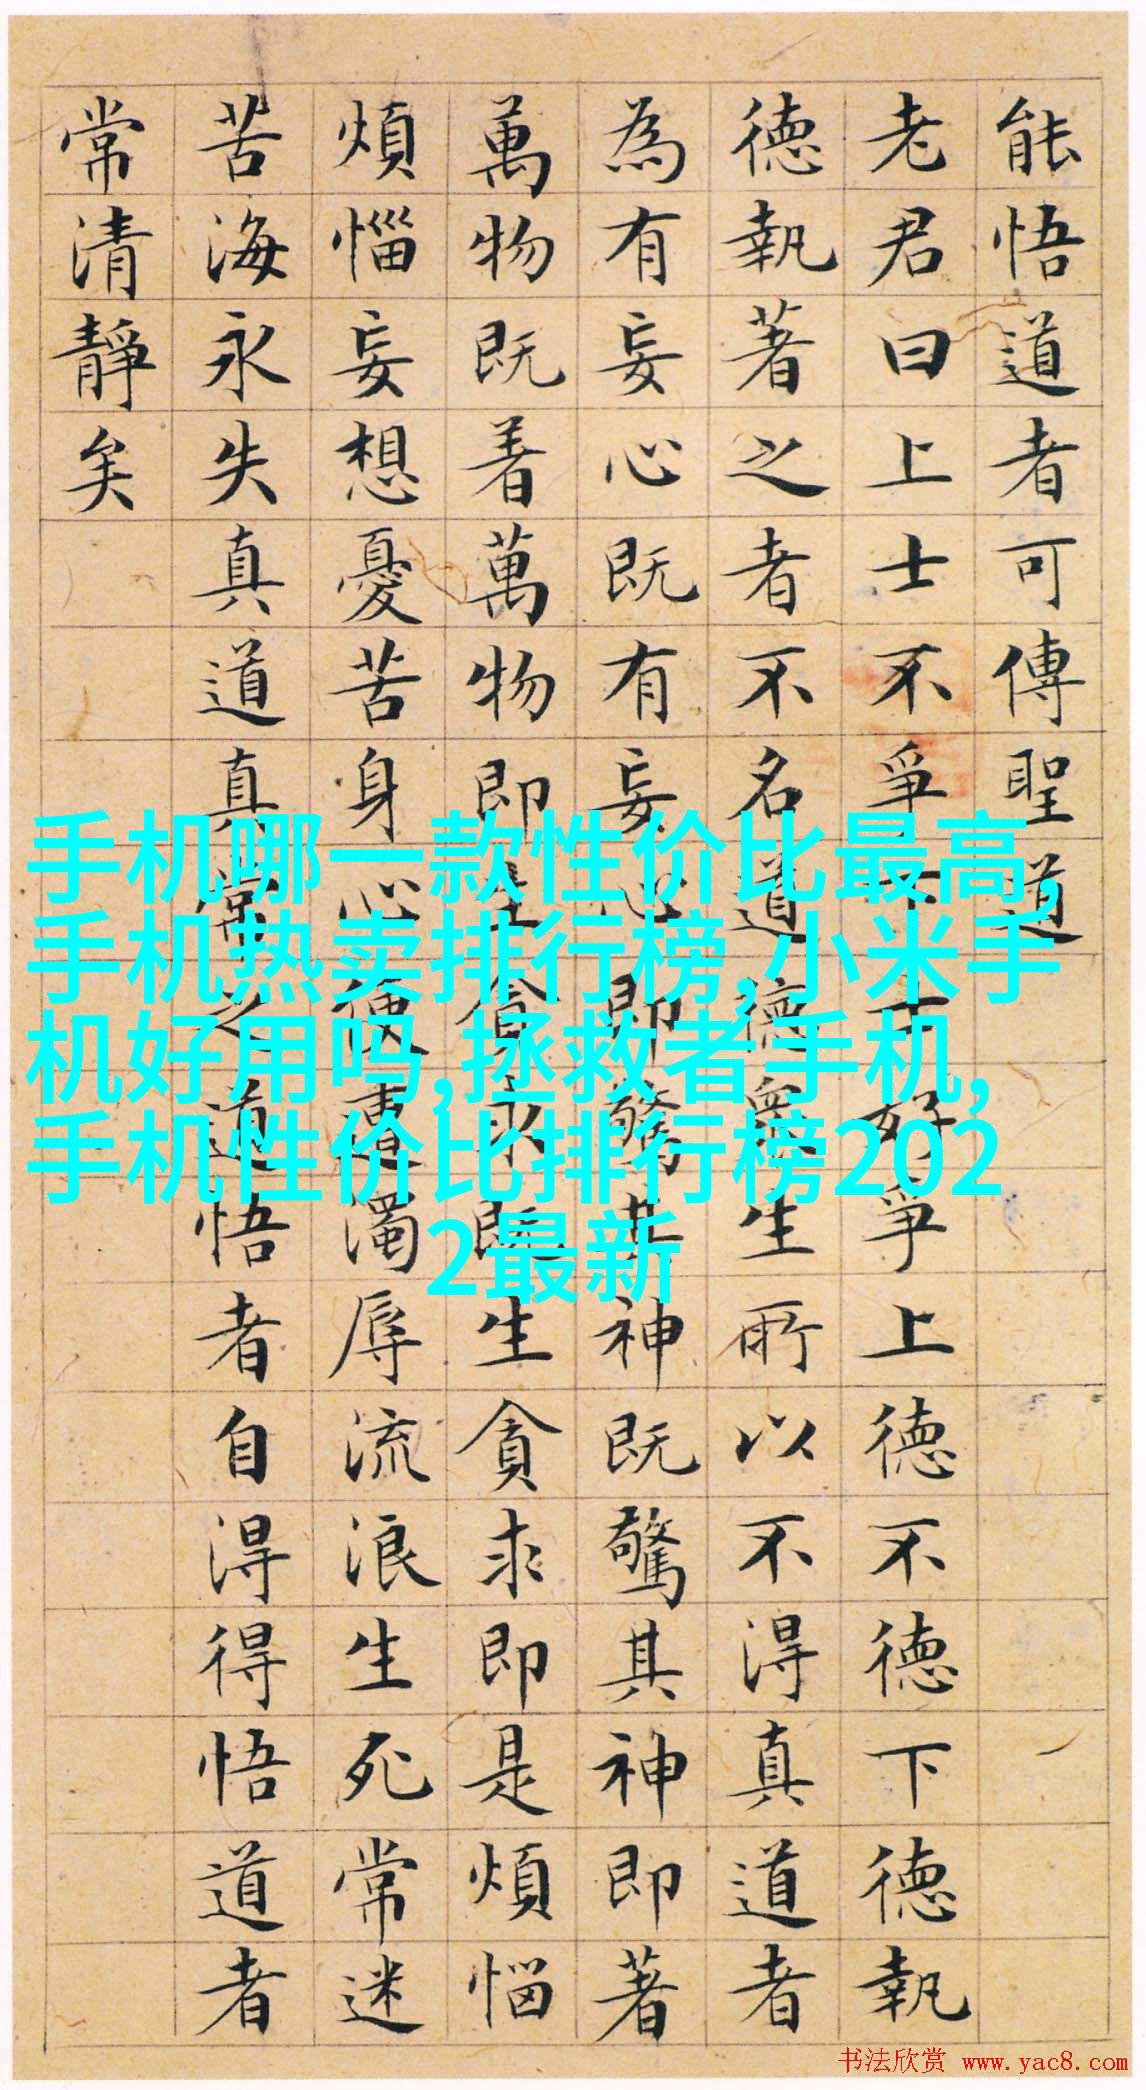 能悟道者可傳聖道
老君曰上士不爭下士好爭上德不德下德執
德執著之者不名道德衆生所以不得真道者
為有妄心既有妄心即驚其神既驚其神即著
萬物既着萬物即生貪求既生貪求即是煩惱
煩惱妄想憂苦身心便遭濁辱流浪生死常迷
苦海永失真道真常之道悟者自得得悟道者
常清靜矣
手机哪一款性价比最高,
手机热卖排行榜,小米手
机好用吗,拯救者手机,
手机性价比排行榜202
2最新
书法欣赏 www.yac8.com